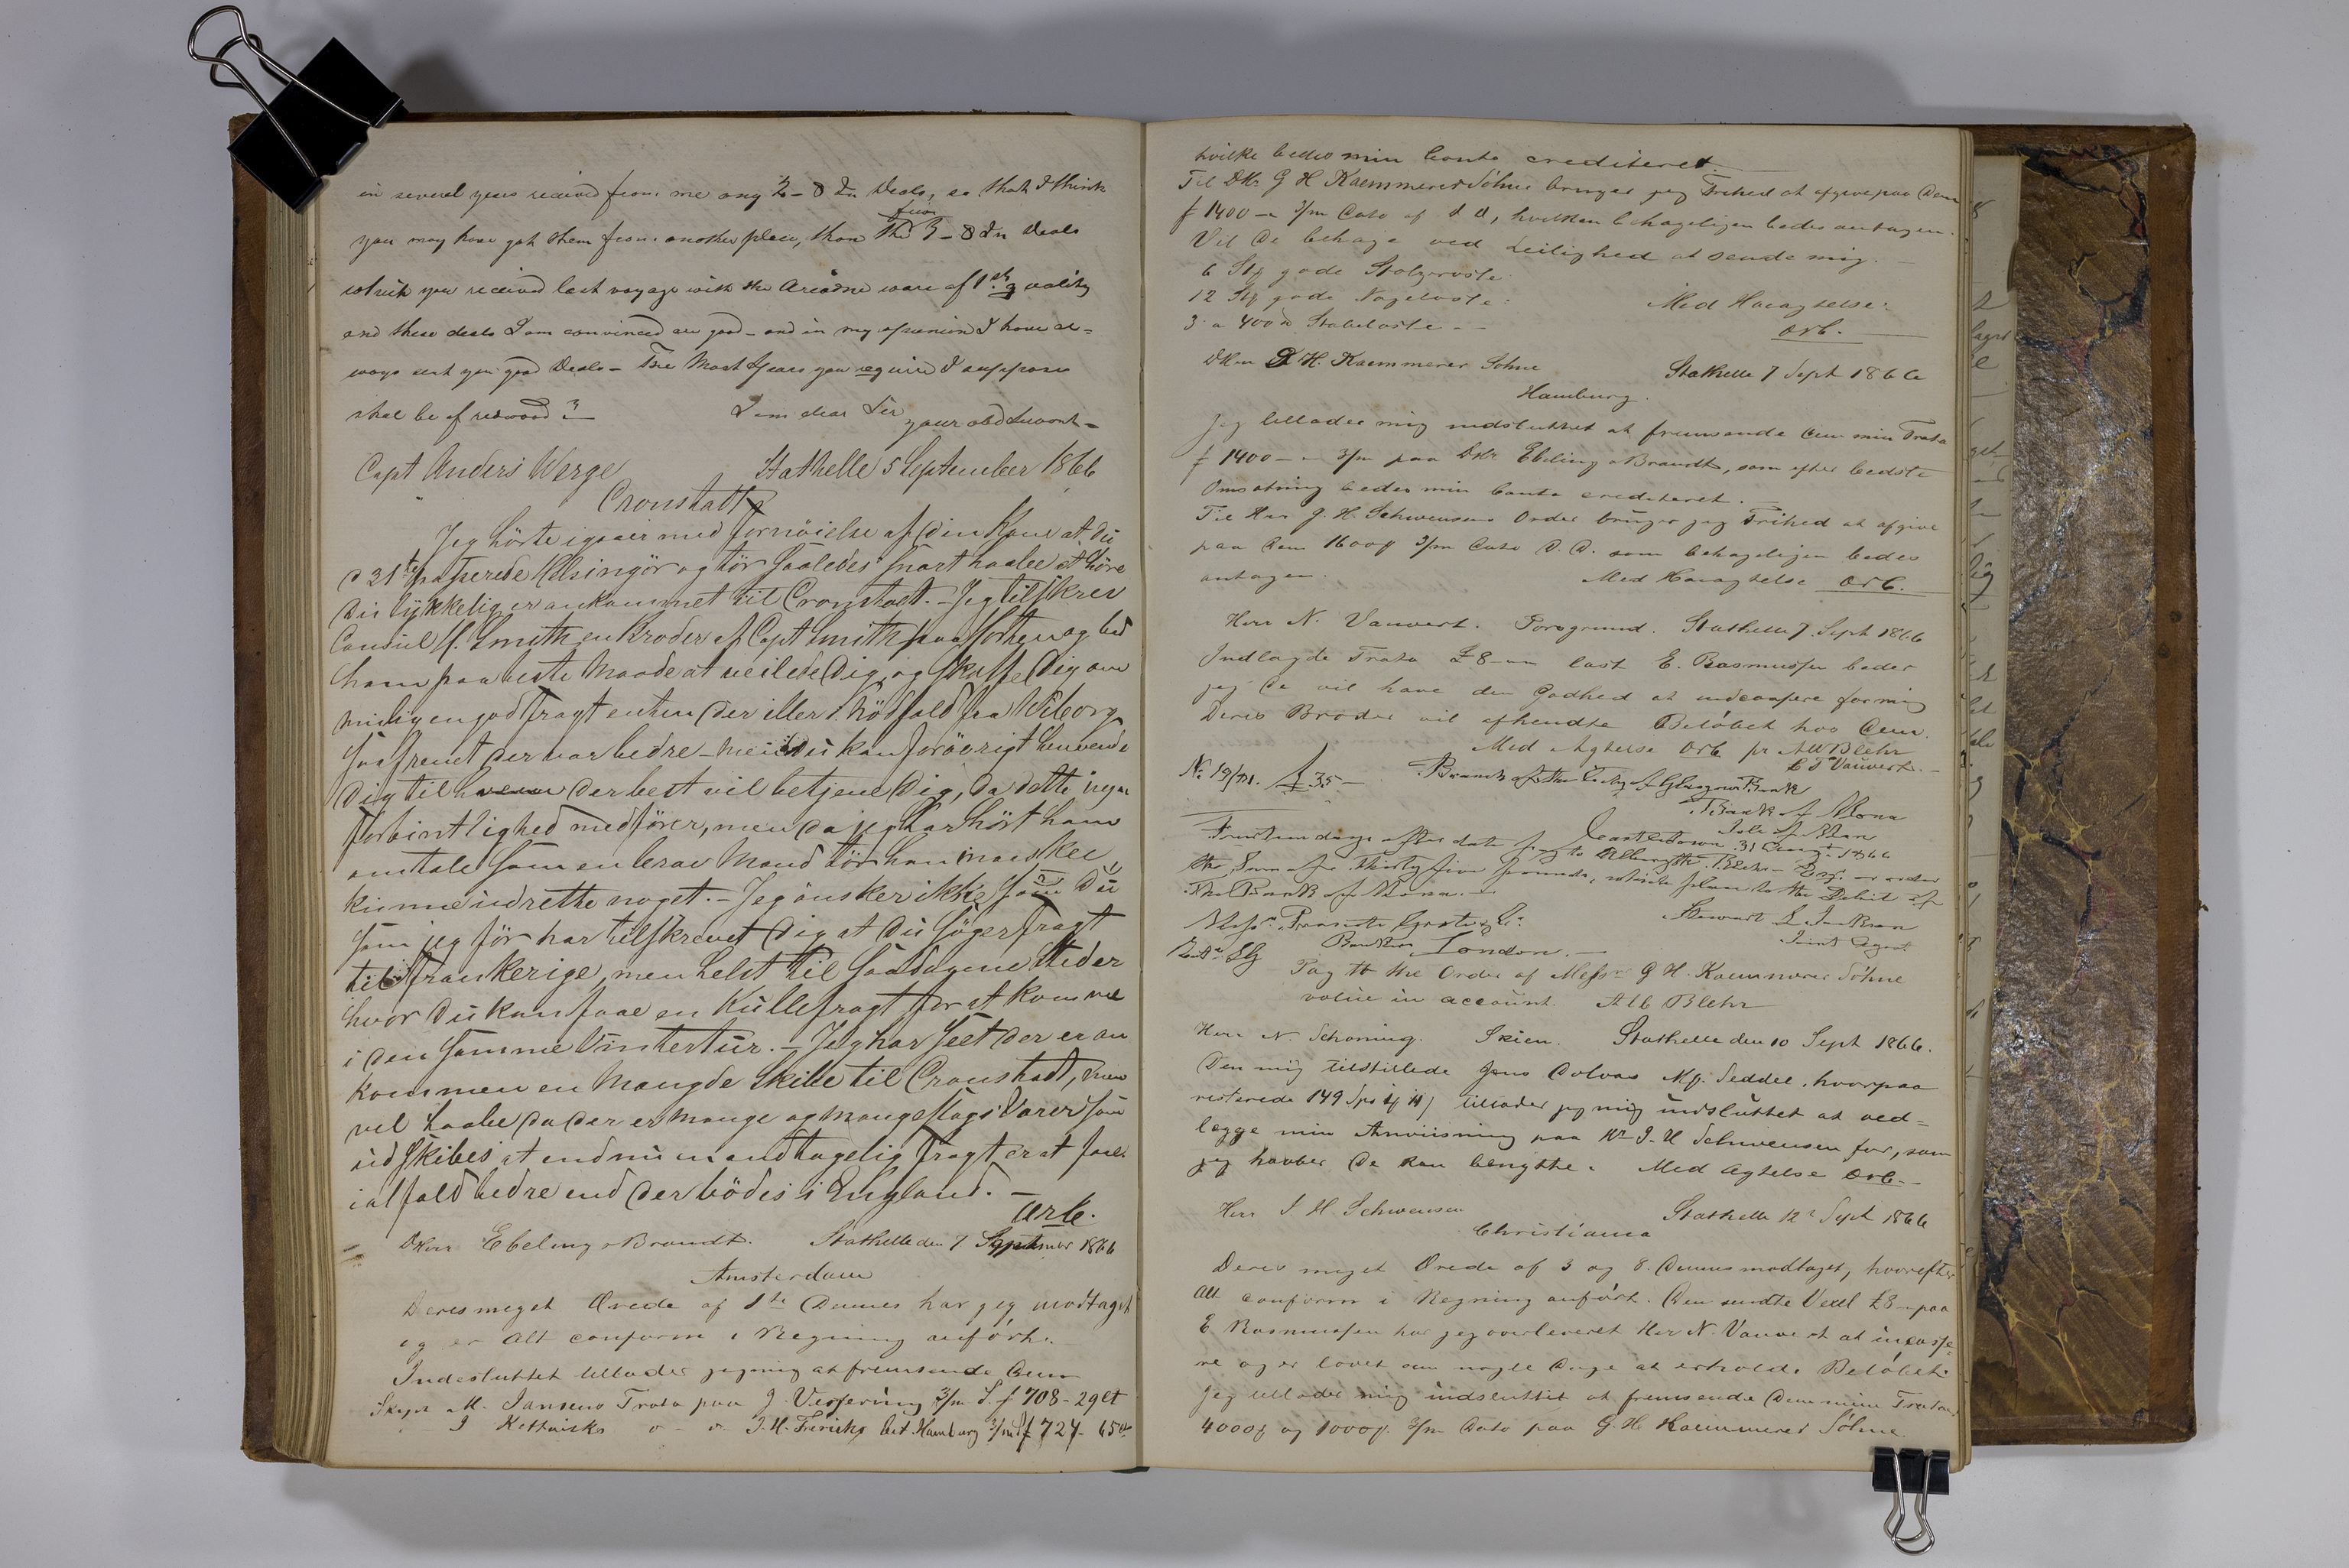 in several years received from me any 2-8 In Deals, so that I think
you may have got them from another place, than the 3-8 In Deals
from
which you received last voyage with the Ariadne ware of 1st quality
and these deals I am convinced are good - and in my opinion I have al=
ways sent you good Deals - The Most Spars you require I suppose
shal be of redwood? I am dear Sir your obd Servant
Capt Anders Werge Stathelle 5 September 1866
Cronstadt
Jeg hörte igaar med fornöielse af din Kone at du
d 31te passerede Helsingör og tör saaledes snart haabe at höre
Du lykkelig er ankommet til Cronstadt. - Jeg tilskrev
Consul Smith en Broder af Capt Smith paa Horten og bad
ham paa beste Maade at veilede Dig, og skaffe Dig om
mulig en god fragt enten der eller i nödfald fra Wiborg
saafremt der var bedre - men Du kan forövrigt henvende
Dig til hvem der best vil betjene Dig, da dette ingen
forbintlighed medförer, men da jeg har hört ham
omtale som en brav Mand tör han maaskee
kunne udrette noget. - Jeg önsker ikke som Du
som jeg för har tilskrevet Dig at Du söger fragt
til Frankerige, men helst til saadagene Steder
hvor Du kan faae en Kullefragt for at komme
i den samme Vintertur. - Jeg har seet der er an
kommen en Mængde Skibe til Cronstadt, men
vel haabe da der er mange og mange slags Varer som
udskibes at endnu en andtagelig fragt er at faae
ialfald bedre end der bödes i England. -
Orb.
DHerr Ebeling & Brandt. Stathelle den 7 September 1866
Amsterdam
Deres meget Ærede af 1te Dennes har jeg modtaget
og er Alt conform i Regning anfört.
Indesluttet tillader jeg mig at fremsende Dem
Skipr M. Jansens Trata paa J. Versering 3/m d. f 708-29 ct
J Kottwicks o - o J. H. Frerichs bet. Hamburg 3/m d f 727-65 ct
hvilke bedes min Conto crediteret.
Til DHr G H Kaemmerer Söhne bruger jeg Frihed at afgive paa Dem
f 1400 - 3/m Dato af d. d, hvilken behageligen bedes antagen.
Vil De behage ved Leilighed at sende mig. -
6 Stk gode Stolper
12 Stk gode Nageloste: Med Høiagtelse:
3 a 400 Stabeloste - Orb.
DHerr G H. Kaemmerer Söhne Stathelle 7 Sept 1866
Hamburg.
Jeg tillader mig indsluttet at fremsende Dem min Trata
f 1400 - 3/m paa DHr Ebeling & Brandt, som efter bedste
Omsætning bedes min Conto crediteret. -
Til Herr J. H. Schwensens Order bruger jeg Frihed at afgive
paa Dem 1600 3/m Dato D. D. som behageligen bedes
antagen. Med Høiagtelse Orb.
Herr N. Vauvert. Porsgrund. Stathelle 7. Sept 1866
Indlagde Trata £8 - last E. Rasmussen beder
jeg De vil have den Godhed at indcassere for mig
Deres Broder vil afhendte Belöbet hos Dem.
Med Agtelse Orb. pr Alb Blehr
Vauvert. -
No 19/ £35 - Branch of the City of Glasgow Bank
Bank of Mona
Isle of Man
Castletown 31 Augt 1866
Fourteen days after date pay to Albregth. Blehr - Esq. or order
the Sum of Thirty five pounds, which place to the Debit of
The Bank of Mona. -
Stewart
Joint Agent
London. -
Pay to the Order of Messrs G H. Kaemmerer Söhne
value in account. Alb Blehr
Herr N. Schoning. Skien. Stathelle den 10 Sept 1866.
Den mig tilstillede Jens Dolvas Seddel, hvorpaa
resterede 149 Spd tillader jeg mig indsluttet at ved=
lægge min Anviisning paa Hr J. H Schwensen for, som
jeg haaber De kan benytte. Med Agtelse Orb. -
Herr J. H. Schwensen Stathelle 12 Sept 1866
Christiania
Deres meget Ærede af 3 og 8. Dennes modtaget, hvorefter
Alt conform i Regning anfört. Den sendte Vexel £8 - paa
E Rasmussen har jeg overleveret Herr N. Vauvert at incasse=
re og er lovet om nogle Dage at erholde Belöbet.
Jeg tillader mig indsluttet at fremsende Dem mine Tratter
4000 og 1000 3/m Dato paa G. H. Kaemmerer Söhne.